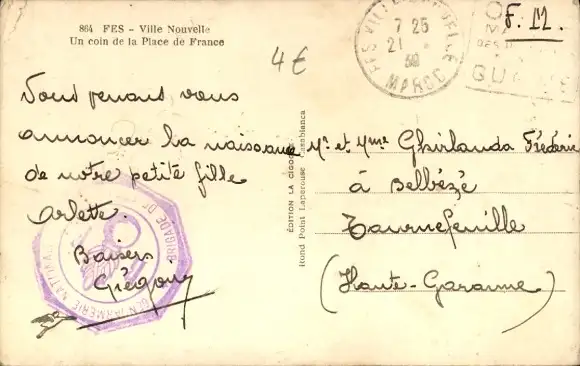 864 FES - Ville Nouvelle
Un coin de la Place de France
4€
F.M.
FES VILLE NOUVELLE
7 25
21
39
MAROC
Vous venant vous
annoncer la naissance
de notre petite fille
Arlette.
Baisers
Grégory
GENDARMERIE NATIONALE
BRIGADE DE
EDITION LA CIGOGNE Casablanca
Rond Point Laperouse
Mr et Mme Ghirlanda Fréderic
à Belbézé
Tournefeuille
(Haute-Garonne)